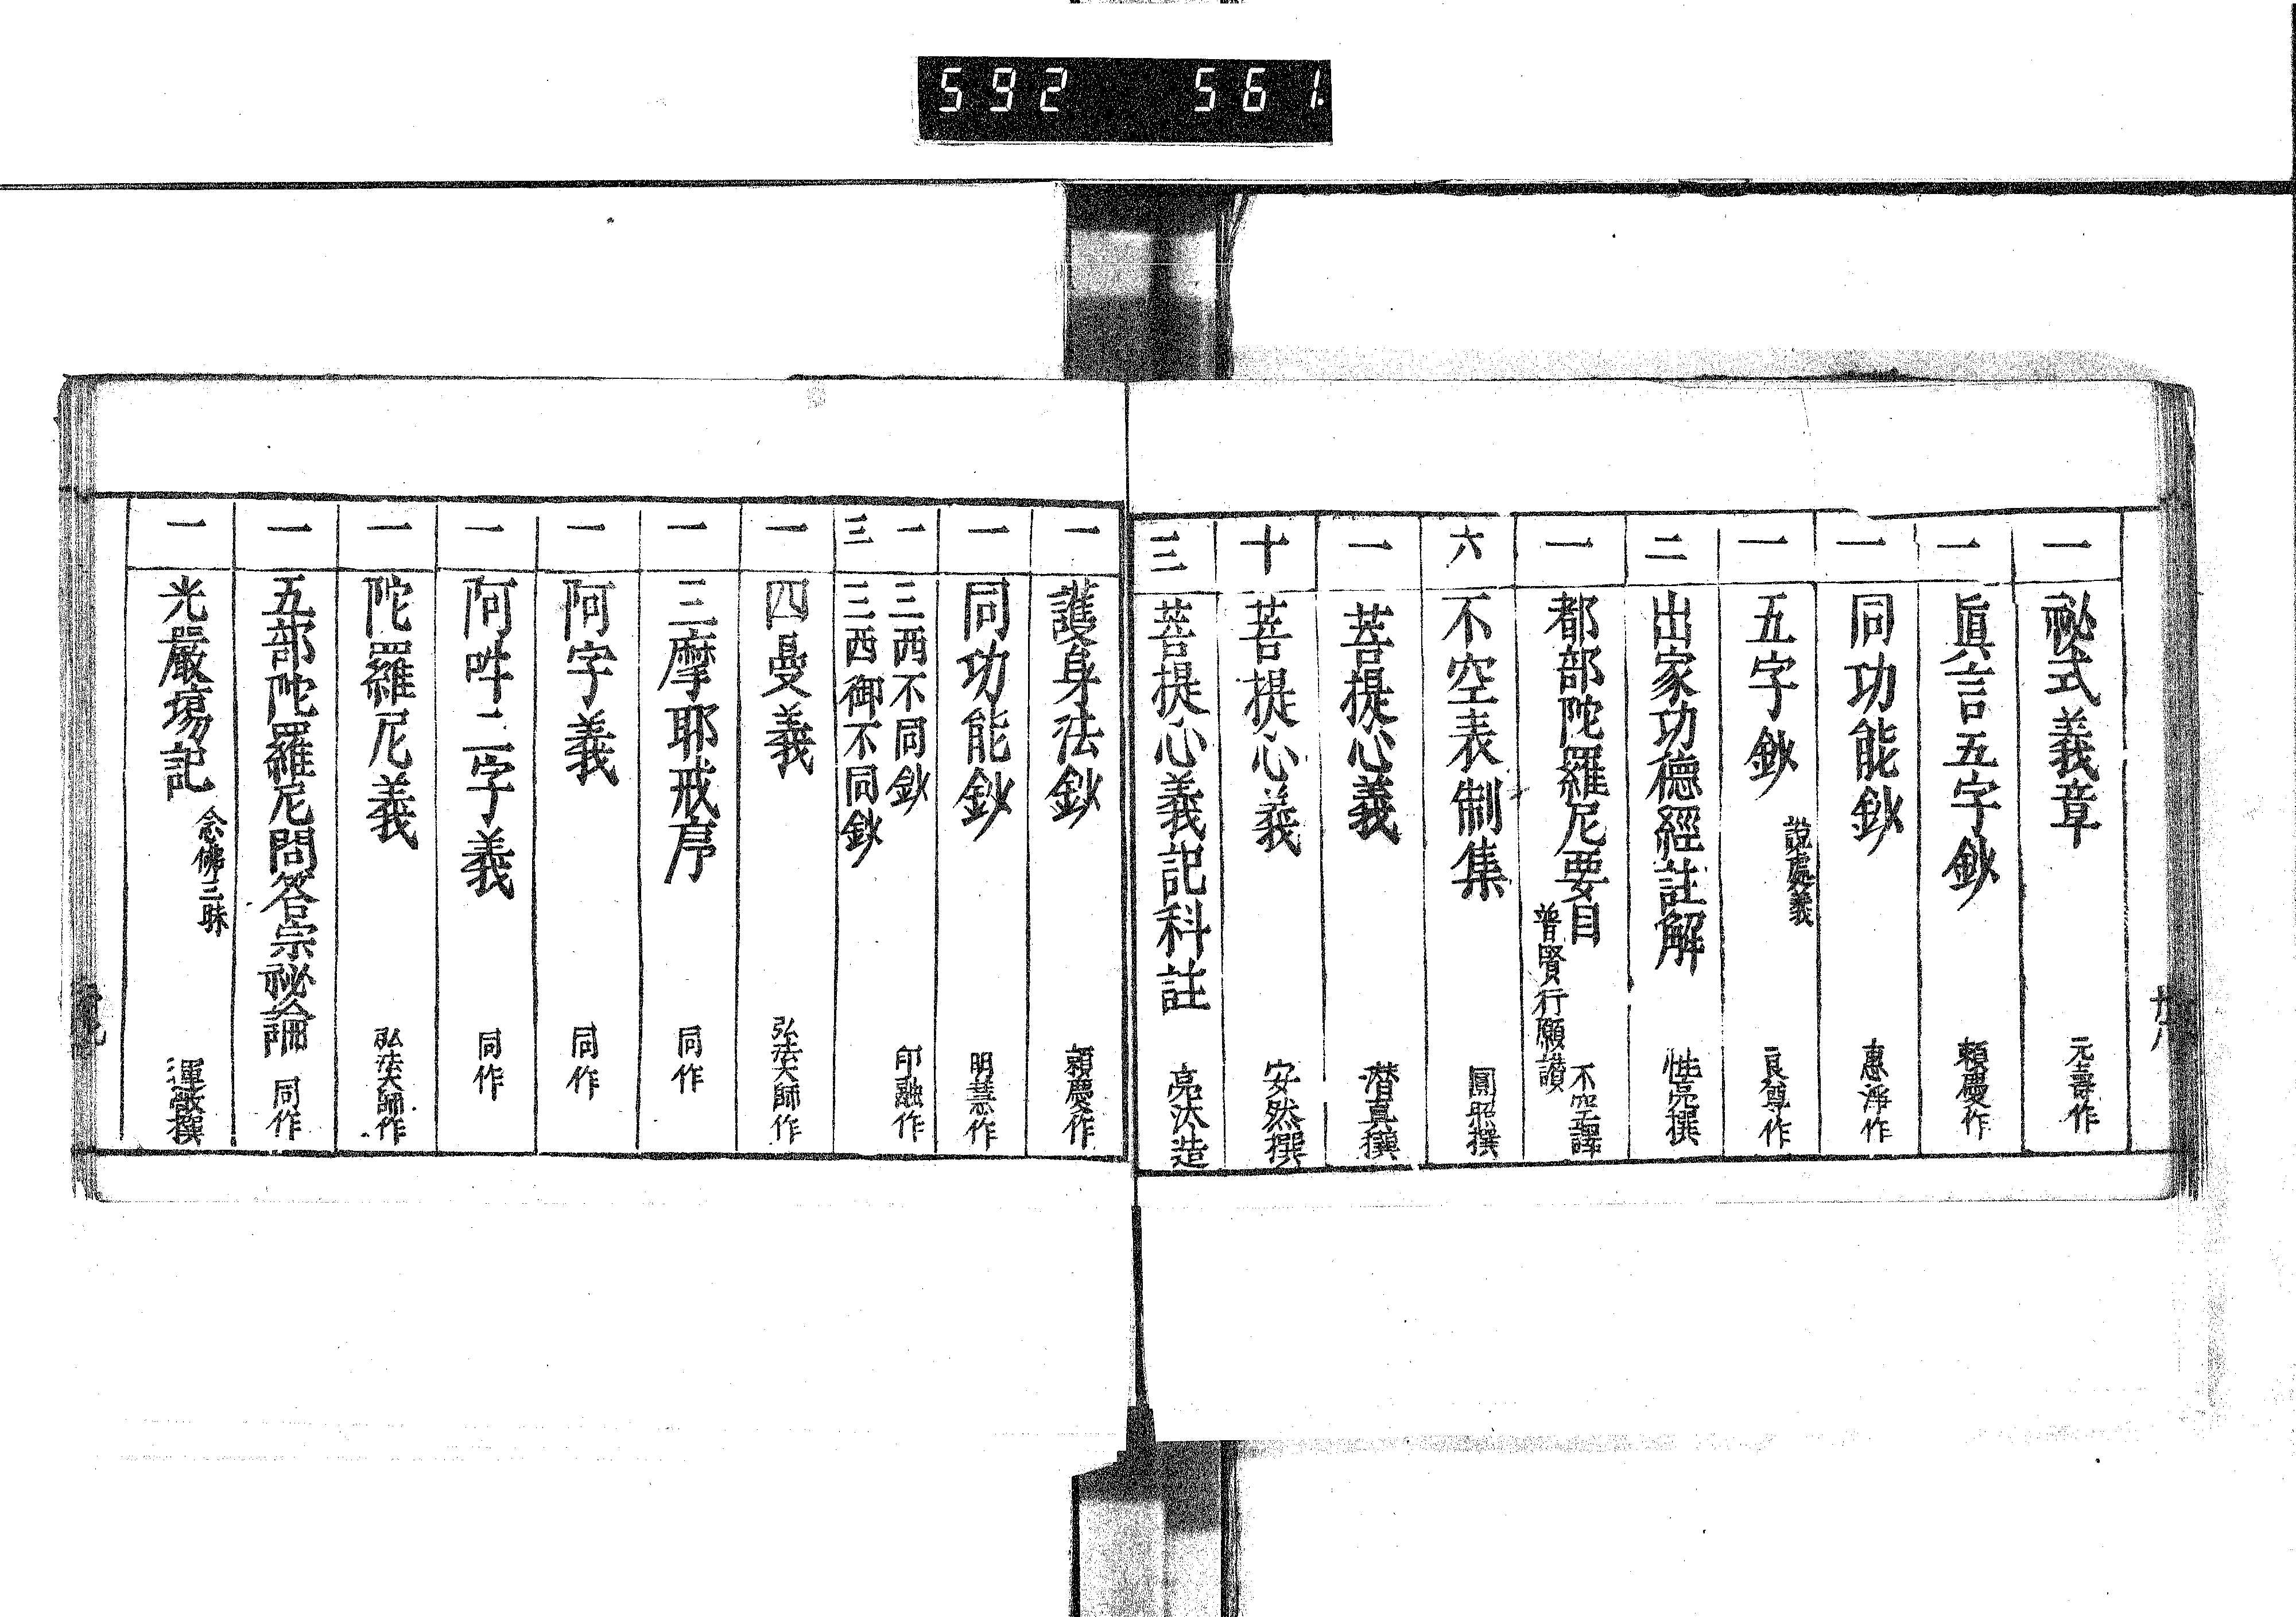 592 561
一 祕式義章 元壽作
一 眞言五字鈔 頼慶作
一 同功能鈔 惠淨作
一 五字鈔 說處義 良尊作
二 出家功德經註解 性亮撰
一 都部陀羅尼要目 普賢行願讃 不空譯
六 不空表制集 圓照撰
一 菩提心義 濳眞撰
十 菩提心義 安然撰
三 菩提心義記科註 亮汰造
一 護身法鈔 頼慶作
一 同功能鈔 明慧作
一 三西不同鈔 印融作
三 三西御不同鈔
一 四曼義 弘法大師作
一 三摩耶戒序 同作
一 阿字義 同作
一 阿吽二字義 同作
一 陀羅尼義 弘法大師作
一 五部陀羅尼問答宗祕論 同作
一 光嚴塲記 念佛三昧 運敞撰